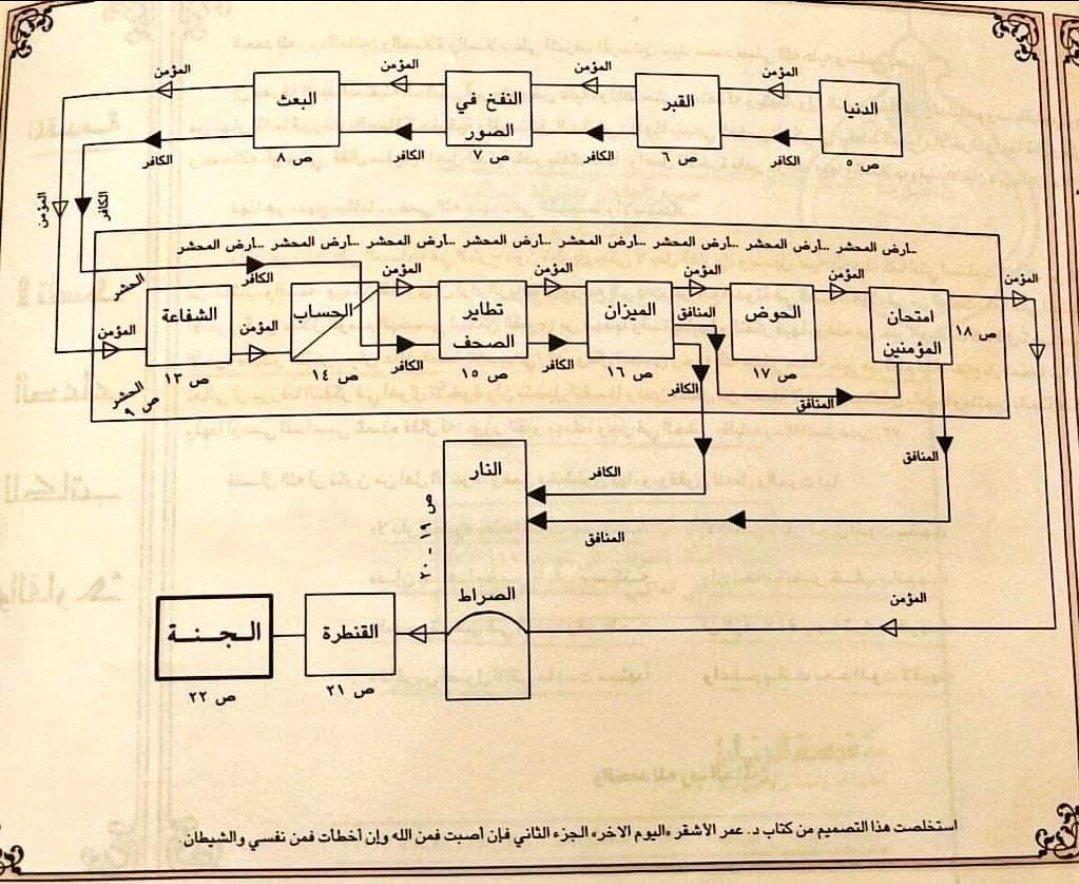 المؤمن
المؤمن
المؤمن
المؤمن
الدنيا
القبر
النفخ في
الصور
البعث
الكافر
الكافر
الكافر
الكافر
ص ٥
ص ٦
ص ٧
ص ٨
المؤمن
الكافر
..ارض المحشر ..ارض المحشر ..ارض المحشر ..ارض المحشر ..ارض المحشر ..ارض المحشر ..ارض المحشر ..ارض المحشر
الكافر
المحشر
المؤمن
المؤمن
المؤمن
المؤمن
المؤمن
المؤمن
الشفاعة
ص ١٣
المؤمن
الحساب
ص ١٤
الكافر
تطاير
الصحف
ص ١٥
الكافر
الميزان
ص ١٦
المنافق
الكافر
الحوض
ص ١٧
امتحان
المؤمنين
ص ١٨
المحشر
ص ٩
المنافق
المنافق
النار
ص ١٩ - ٢٠
الكافر
المنافق
الصراط
المؤمن
القنطرة
ص ٢١
الـجـنـــة
ص ٢٢
استخلصت هذا التصميم من كتاب د. عمر الأشقر «اليوم الاخر» الجزء الثاني فإن أصبت فمن الله وإن أخطأت فمن نفسي والشيطان.